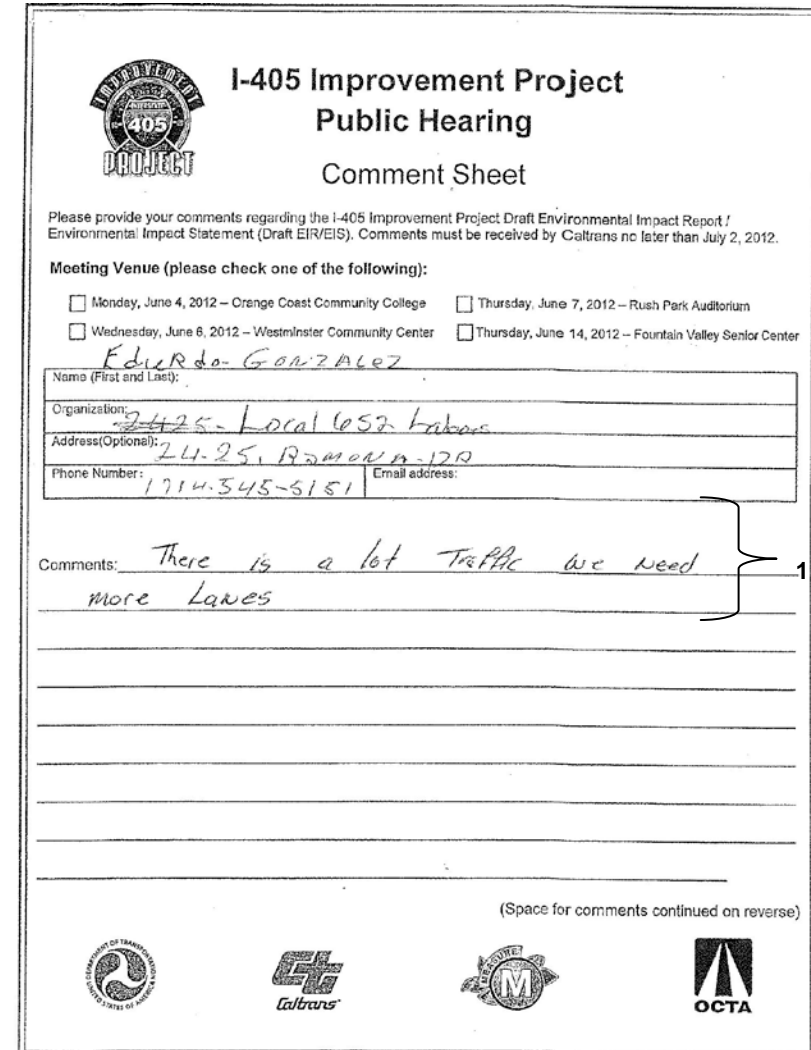 IMPROVEMENT
INTERSTATE
405
PROJECT
I-405 Improvement Project
Public Hearing
Comment Sheet
Please provide your comments regarding the I-405 Improvement Project Draft Environmental Impact Report /
Environmental Impact Statement (Draft EIR/EIS). Comments must be received by Caltrans no later than July 2, 2012.
Meeting Venue (please check one of the following):
Monday, June 4, 2012 – Orange Coast Community College
Thursday, June 7, 2012 – Rush Park Auditorium
Wednesday, June 6, 2012 – Westminster Community Center
Thursday, June 14, 2012 – Fountain Valley Senior Center
GONZALez
Name (First and Last):
Organization: 2425- Local 652
Address(Optional): 24-25,
Phone Number: 1714-545-5151
Email address:
Comments: There is a lot Traffic we Need
more Lanes
1
(Space for comments continued on reverse)
DEPARTMENT OF TRANSPORTATION
UNITED STATES OF AMERICA
Caltrans
MEASURE
M
OCTA